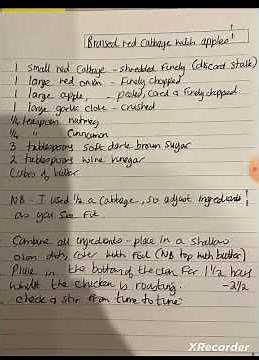 Braised red Cabbage with apples!
1 small red Cabbage - shredded finely (discard stalk)
1 large red onion - finely chopped
1 large apple, peeled, cored & finely chopped
1 large garlic clove - crushed
1/4 teaspoon nutmeg
1/4 " Cinnamon
3 tablespoons soft dark brown sugar
2 tablespoons wine vinegar
Cubes of butter
NB - I used 1/2 a cabbage, so adjust ingredients
as you see fit!
Combine all ingredients - place in a shallow
oven dish, cover with foil (NB top with butter)
Place in the bottom of the oven for 1 1/2 hours
whilst the chicken is roasting. - 2 1/2
check & stir from time to time
XRecorder